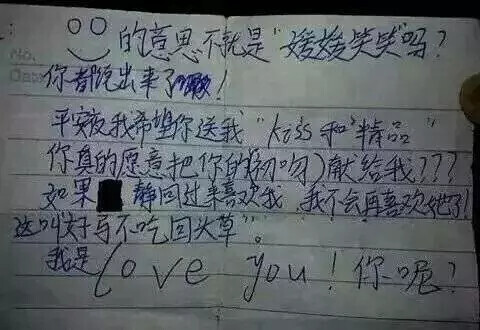 No.
Date
的意思不就是"媛媛笑笑"吗?
你都说出来了啦!
平安夜我希望你送我"kiss和"精品"
你真的愿意把你的(初吻)献给我???
如果 静回过来喜欢我 我不会再喜欢她了!
这叫"好马不吃回头草"。
我是love you!你呢?